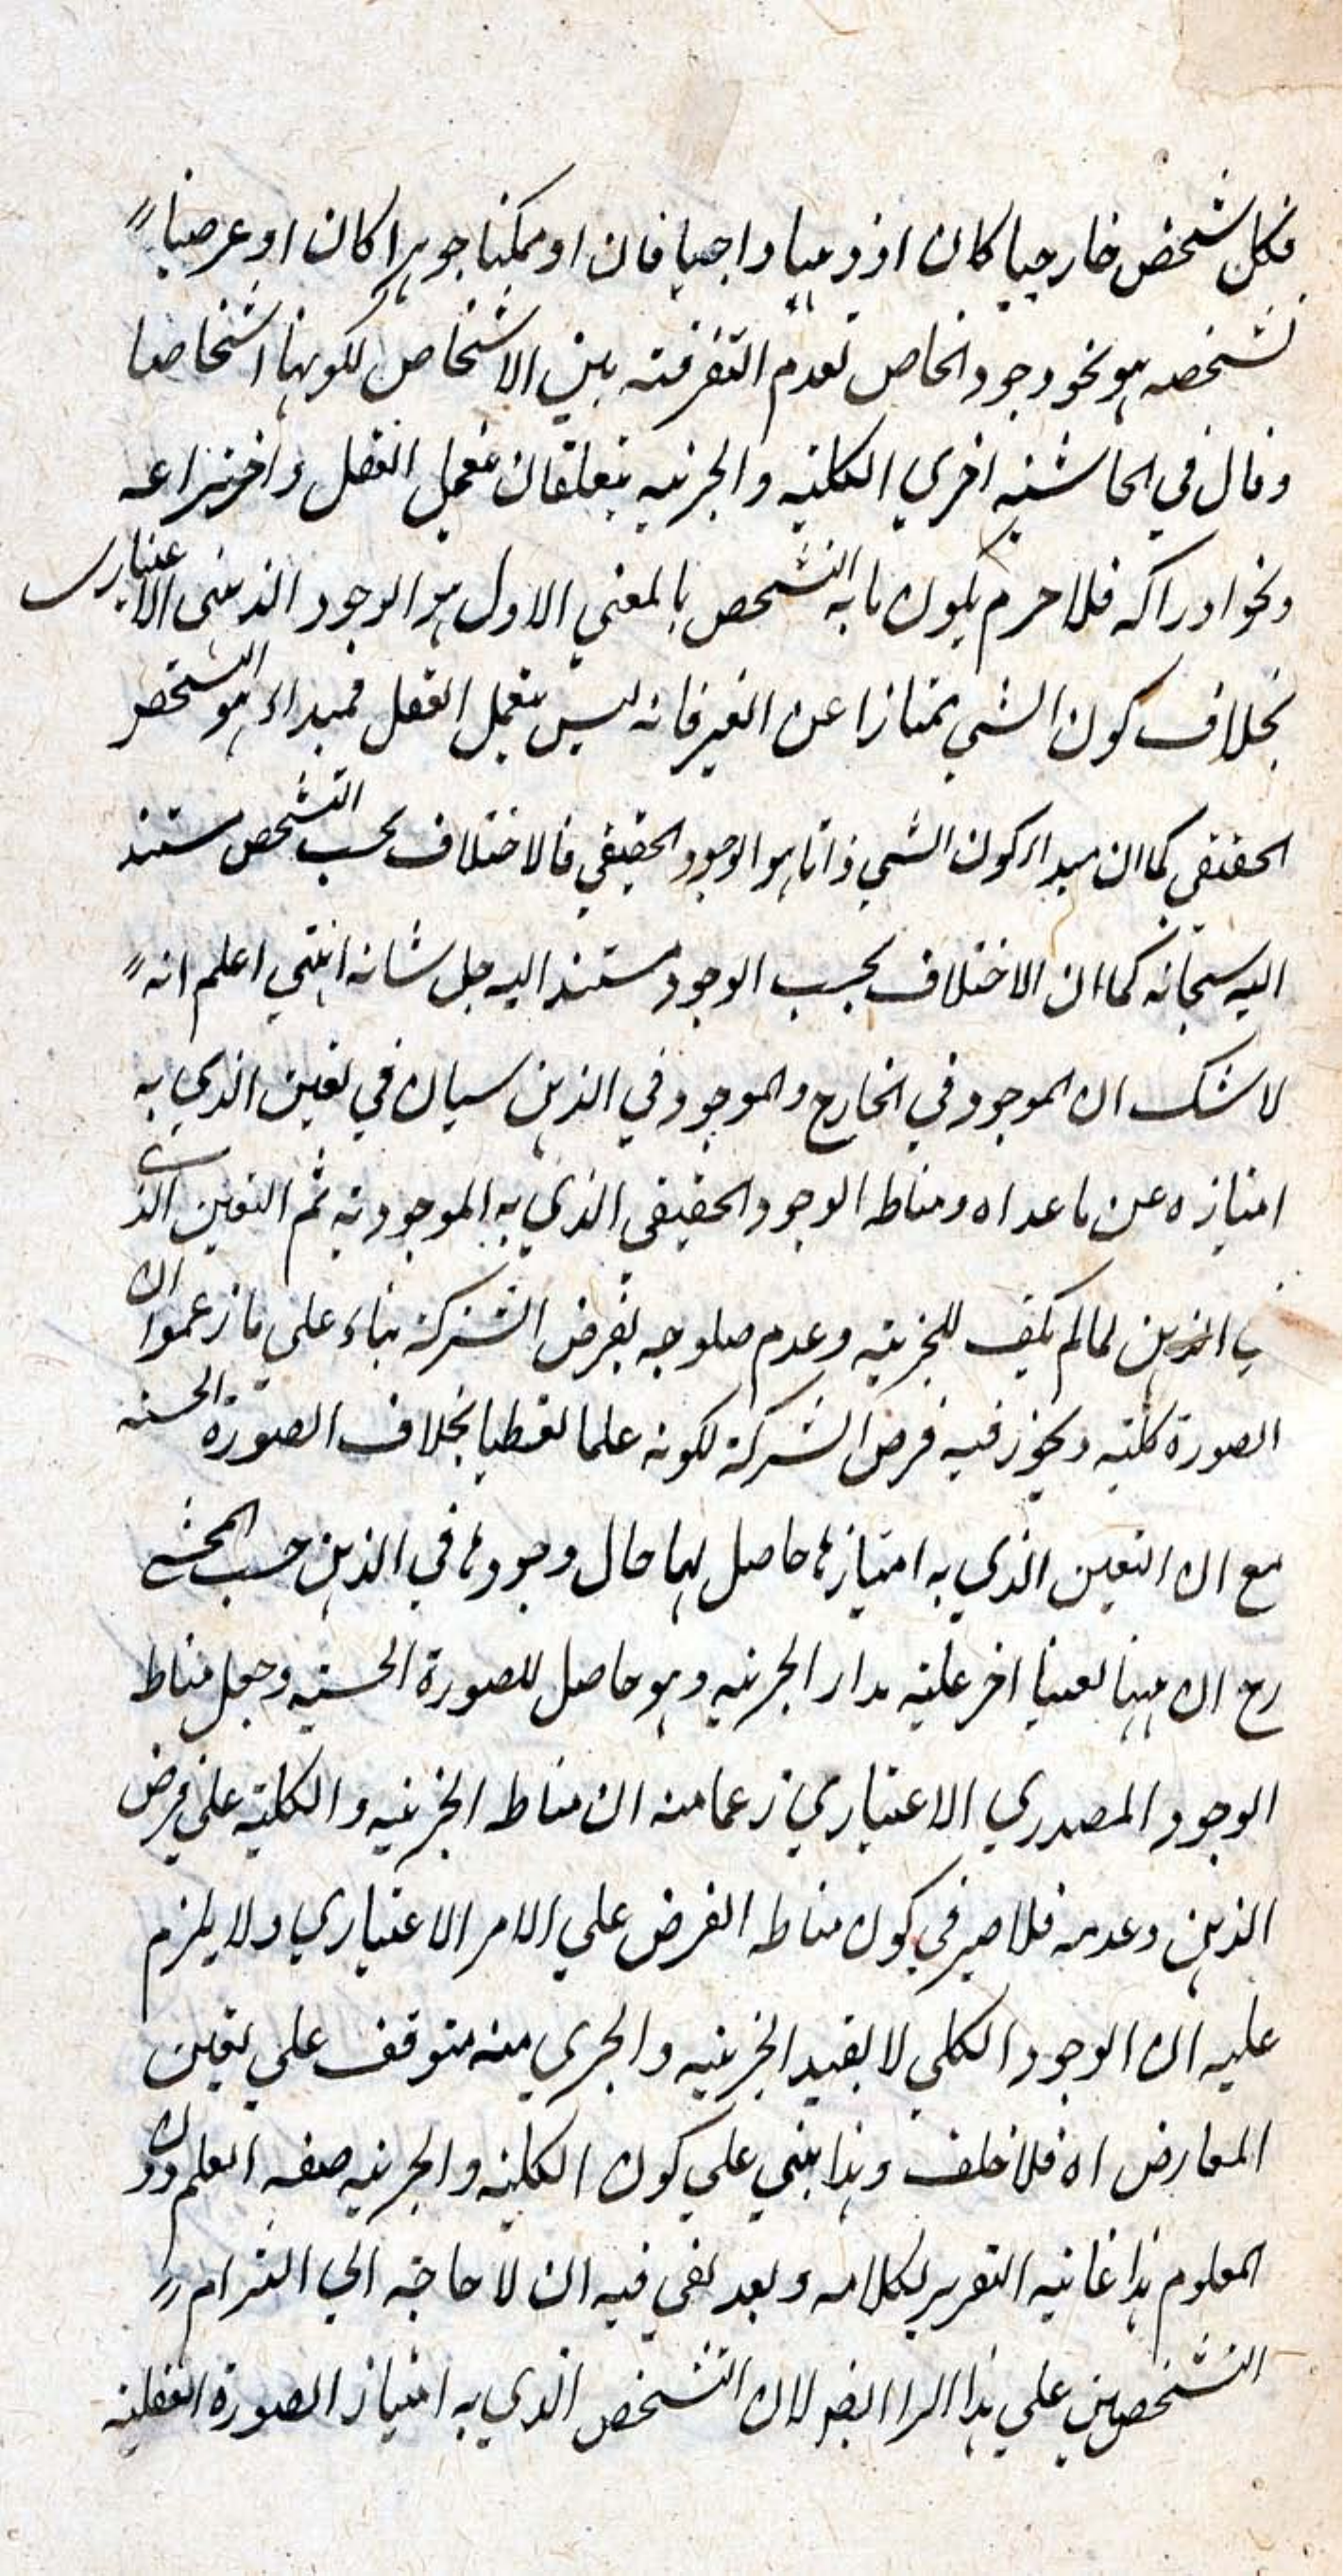 فكل شخص خارجيا كان او ذهنيا واجبا كان او ممكنا جوهرا كان او عرضيا
تشخصه هو نحو وجود الخاص لعدم التفرقة بين الاشخاص لكونها اشخاصا
وقال في الحاشية اخري الكلية والجزئية يتعلقان بعمل العقل واختراعه
ونحو ادراكه فلا جرم يكون ما به التشخص بالمعني الاول هو الوجود الذهني الاعتباري
بخلاف كون الشي ممتازا عن الغير فانه ليس بعمل العقل فمبداءه هو التشخص
الحقيقي كما ان مبداء كون الشي ذاتا هو الوجود الحقيقي فالاختلاف بحسب التشخص مستند
اليه سبحانه كما ان الاختلاف بحسب الوجود مستند اليه جل شانه انتهي اعلم انه
لا شك ان الموجود في الخارج والموجود في الذهن سيان في تعين الذي به
امتيازه عن ما عداه ومناطه الوجود الحقيقي الذي به الموجودية ثم التعين الذي
في الذهن لما لم يكف للجزئية وعدم صلوحه لفرض الشركة بناء علي ما زعموا ان
الصورة كلية ويجوز فيه فرض الشركة لكونه علما لقطيا بخلاف الصورة الحسية
مع ان التعين الذي به امتيازها حاصل لهما حال وجودها في الذهن حسب المحشي
رح ان ههنا تعينا اخر عليه مدار الجزئية وهو حاصل للصورة الحسية وجعل مناط
الوجود المصدري الاعتباري زعما منه ان مناط الجزئية والكلية علي فرض
الذهن وعدمه فلا ضير في كون مناط الفرض علي الامر الاعتباري ولا يلزم
عليه ان الوجود الكلي لا يفيد الجزئية والجزي منه متوقف علي تعين
المعارض اه فلا خلف وهذا مبني علي كون الكلية والجزئية صفة العلم دون
المعلوم هذا غاية التقرير لكلامه وبعد لفي فيه ان لا حاجة الي التزام
التشخصين علي هذا الرا ايضا لان التشخص الذي به امتياز الصورة العقلية